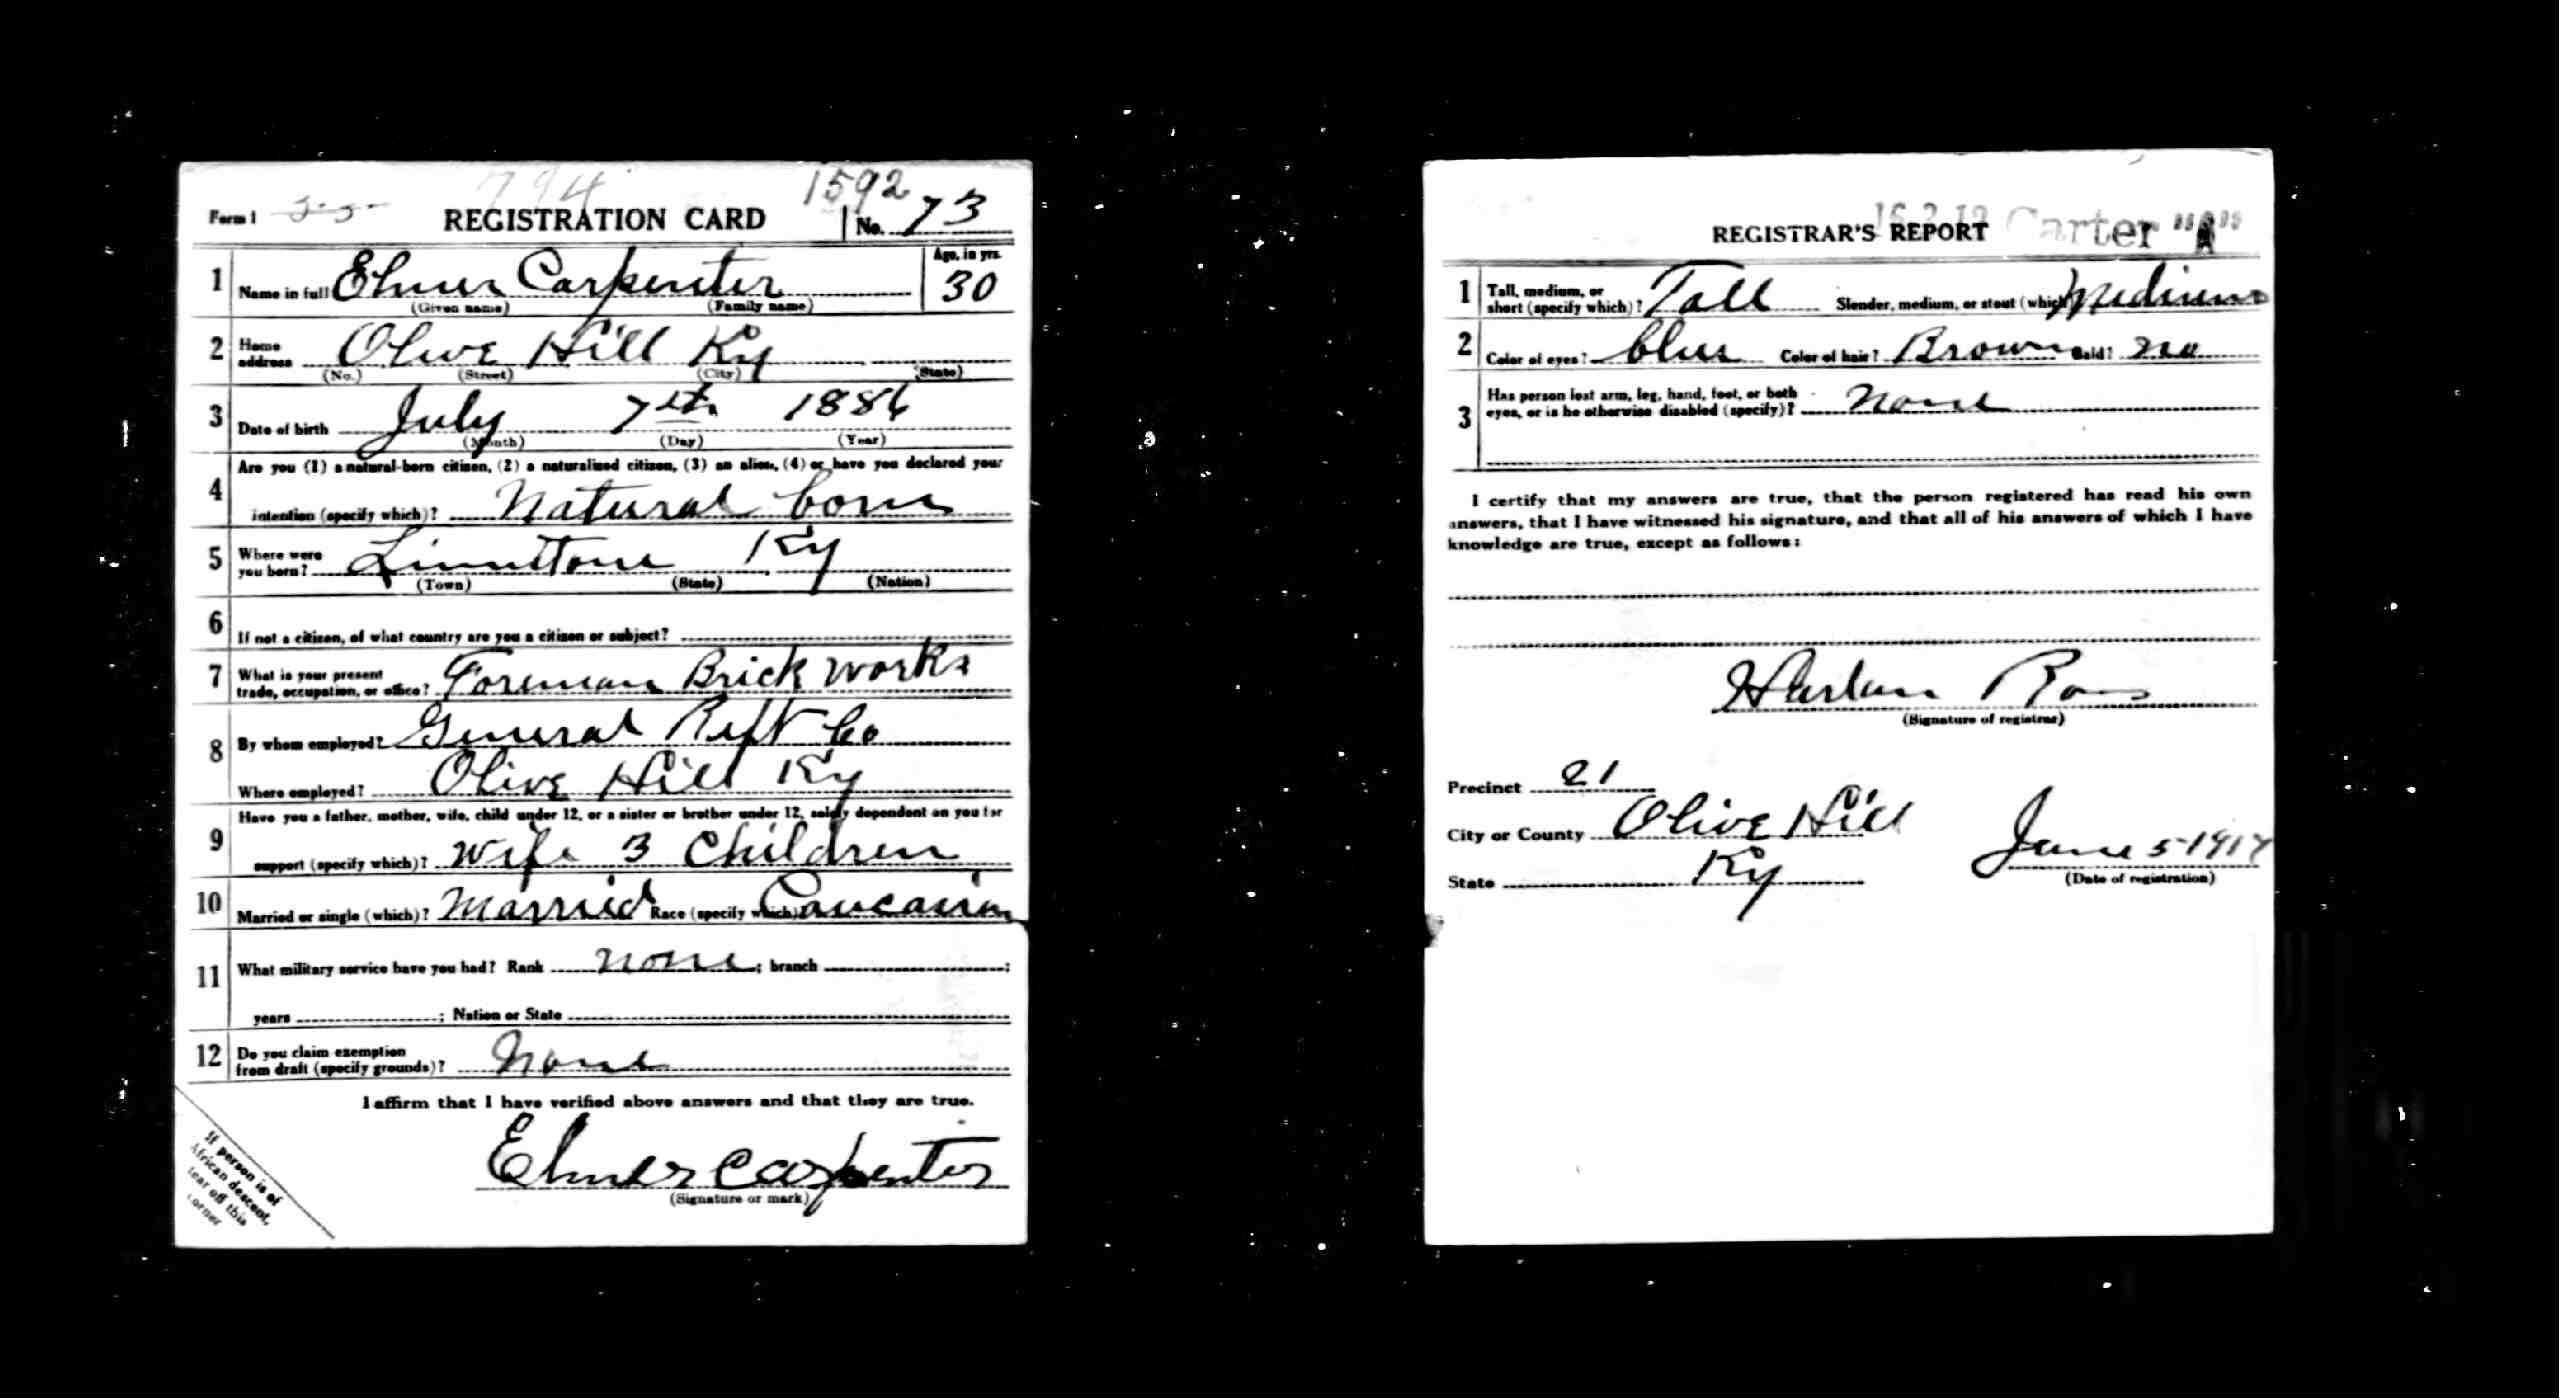 794 1592
Form 1 REGISTRATION CARD No. 73
1 Name in full Elmer Carpenter Age, in yrs. 30
(Given name) (Family name)
2 Home address Olive Hill Ky
(No.) (Street) (City) (State)
3 Date of birth July 7th 1886
(Month) (Day) (Year)
Are you (1) a natural-born citizen, (2) a naturalized citizen, (3) an alien, (4) or have you declared your
4 intention (specify which)? Natural born
5 Where were you born? Limestone Ky
(Town) (State) (Nation)
6 If not a citizen, of what country are you a citizen or subject?
7 What is your present trade, occupation, or office? Foreman Brick works
8 By whom employed? General Reft Co
Where employed? Olive Hill Ky
Have you a father, mother, wife, child under 12, or a sister or brother under 12, solely dependent on you for
9 support (specify which)? Wife 3 Children
10 Married or single (which)? Married Race (specify which)? Caucasian
11 What military service have you had? Rank none ; branch ;
years ; Nation or State
12 Do you claim exemption from draft (specify grounds)? None
I affirm that I have verified above answers and that they are true.
Elmer Carpenter
(Signature or mark)
If person is of
African descent,
tear off this
corner
REGISTRAR'S REPORT Carter "A"
1 Tall, medium, or short (specify which)? Tall Slender, medium, or stout (which)? Medium
2 Color of eyes? blue Color of hair? Brown Bald? no
3 Has person lost arm, leg, hand, foot, or both eyes, or is he otherwise disabled (specify)? None
I certify that my answers are true, that the person registered has read his own
answers, that I have witnessed his signature, and that all of his answers of which I have
knowledge are true, except as follows:
Harlan
(Signature of registrar)
Precinct 21
City or County Olive Hill
State Ky June 5-1917
(Date of registration)